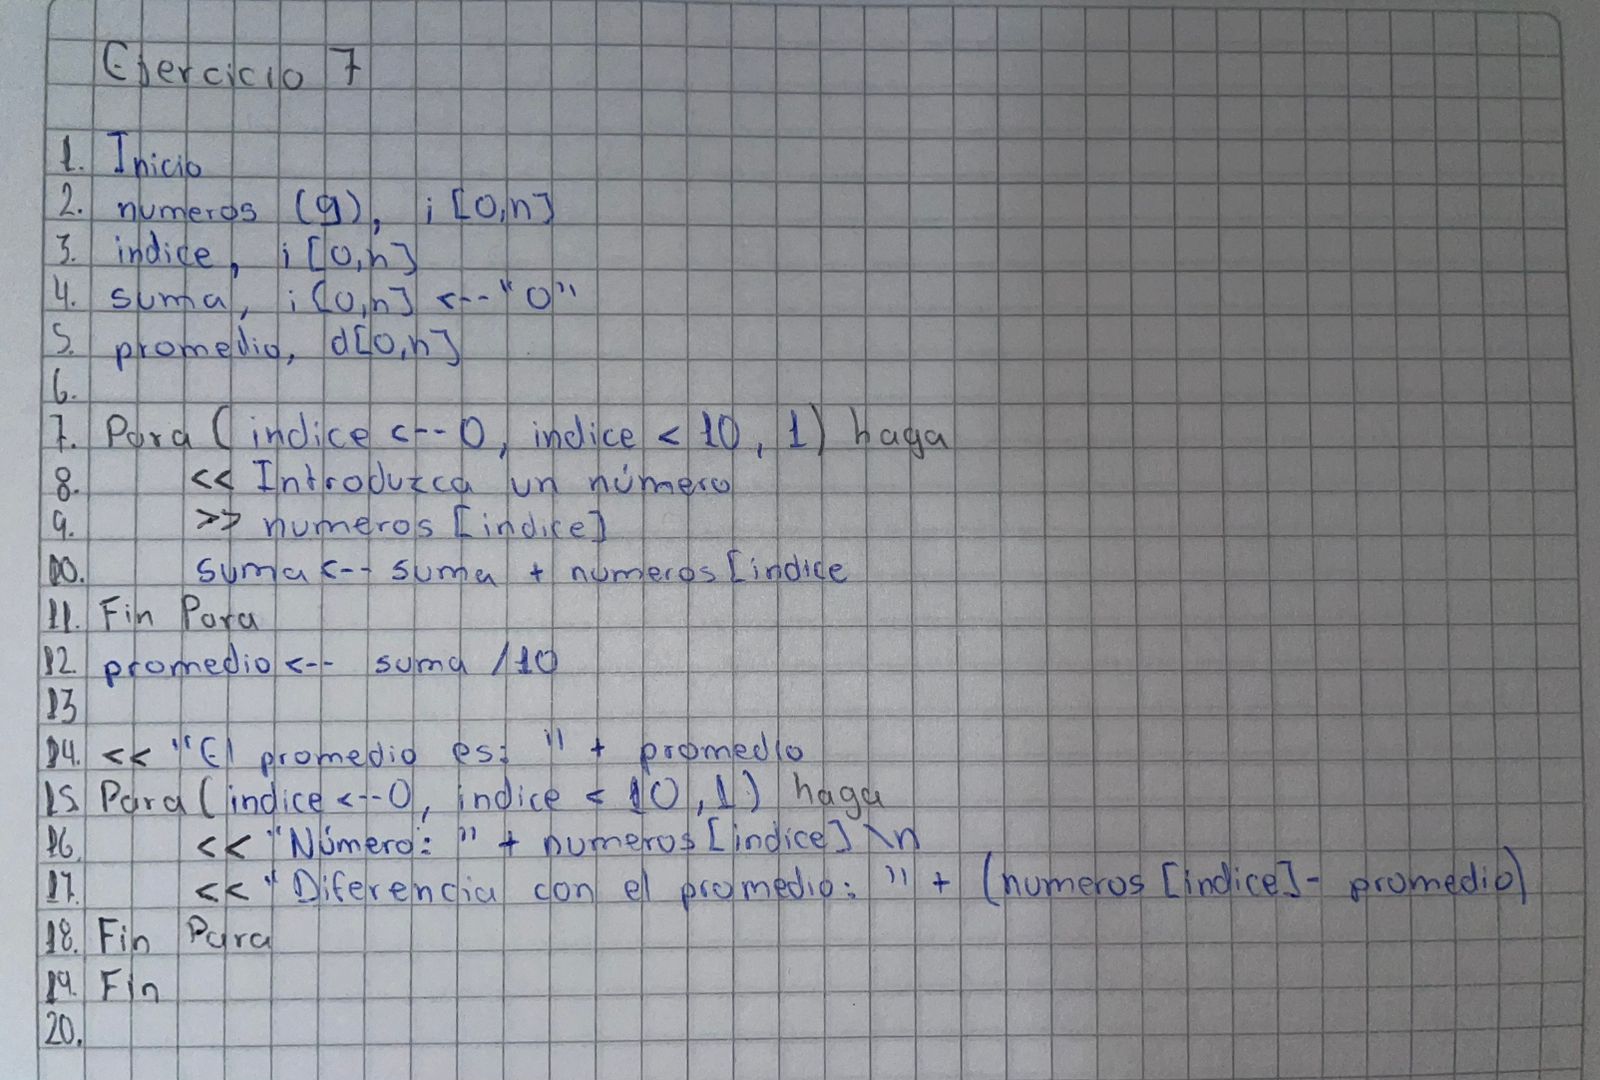 Ejercicio 7
1. Inicio
2. numeros (9), i [0,n]
3. indice, i [0,n]
4. suma, i [0,n] <-- "0"
5. promedio, d[0,n]
6.
7. Para ( indice <-- 0, indice < 10, 1) haga
8. << Introduzca un número
9. >> numeros [indice]
10. suma <-- suma + numeros [indice
11. Fin Para
12 promedio <-- suma /10
13
14. << "El promedio es: " + promedio
15 Para ( indice <-- 0, indice < 10, 1) haga
16. << "Número: " + numeros [indice] \n
17. << "Diferencia con el promedio: " + (numeros [indice] - promedio)
18. Fin Para
19. Fin
20.